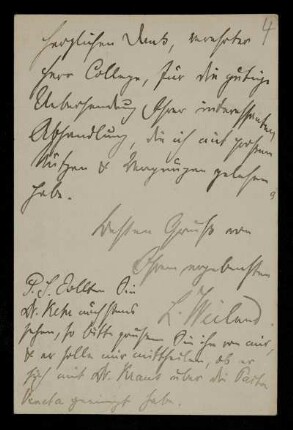 4
herzlichen Dank, verehrter
Herr College, für die gütige
Uebersendung Ihrer interessanten
Abhandlung, die ich mit grossem
Nutzen & Vergnügen gelesen
habe.
Besten Gruss von
Ihrem ergebensten
L. Weiland.
P. S. Sollten Sie
Dr. Kehr nächstens
sehen, so bitte grüssen Sie ihn von mir,
& er solle mir mittheilen, ob er
sich mit Dr. Kraus über die Pacta
Veneta geeinigt habe.